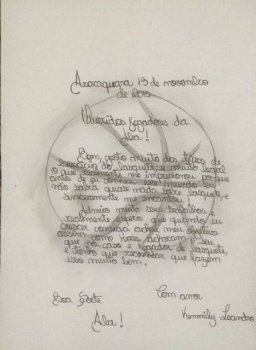 Araraquara 13 de novembro
de
Queridos jogadores da
Aba!
Bom, gosto muito dos
do basquete, é muito legal
o que me impressiona porque
antes de eu esse mundo eu
não sabia quase nada sobre basquete e
sinceramente me encantei.
Admiro muito seus trabalhos e
realmente espero que quando eu
crescer consiga achar meu objetivo
assim como vocês acharam o seu
que no caso é jogador de basquete,
e tenho que reconhecer que fazem
isso muito bem.
Boa Sorte Com amor
Aba! Leandro